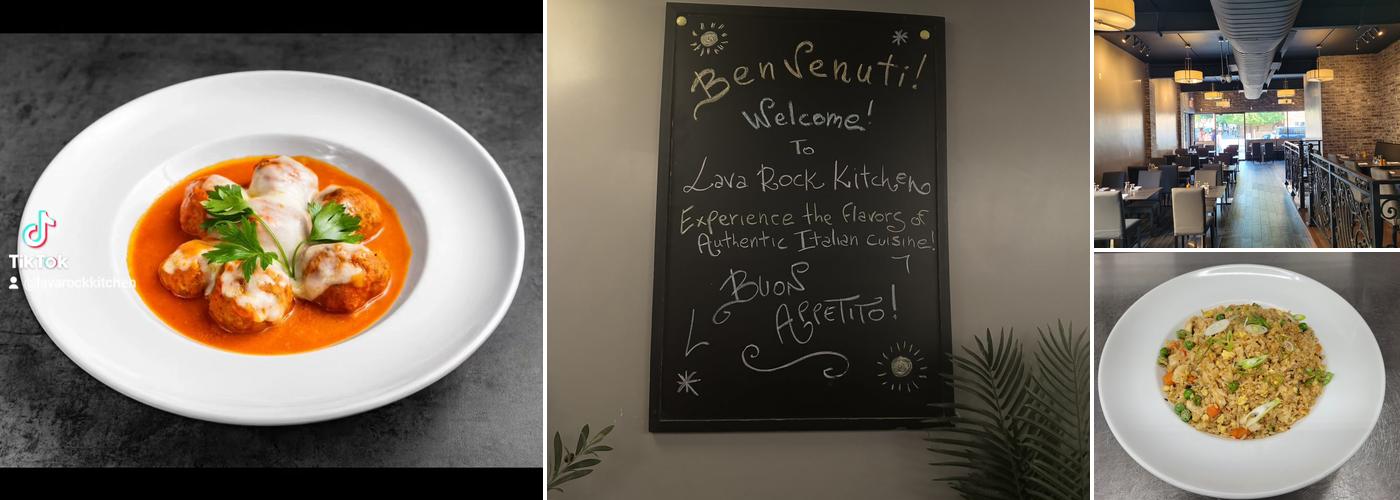 TikTok
@lavarockkitchen
Benvenuti!
Welcome!
To
Lava Rock Kitchen
Experience the flavors of
Authentic Italian cuisine!
Buon
Appetito!